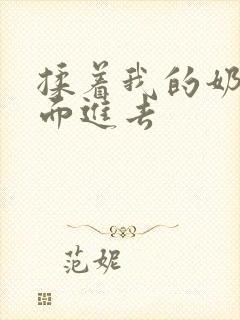 揉着我的奶
而進去
范妮